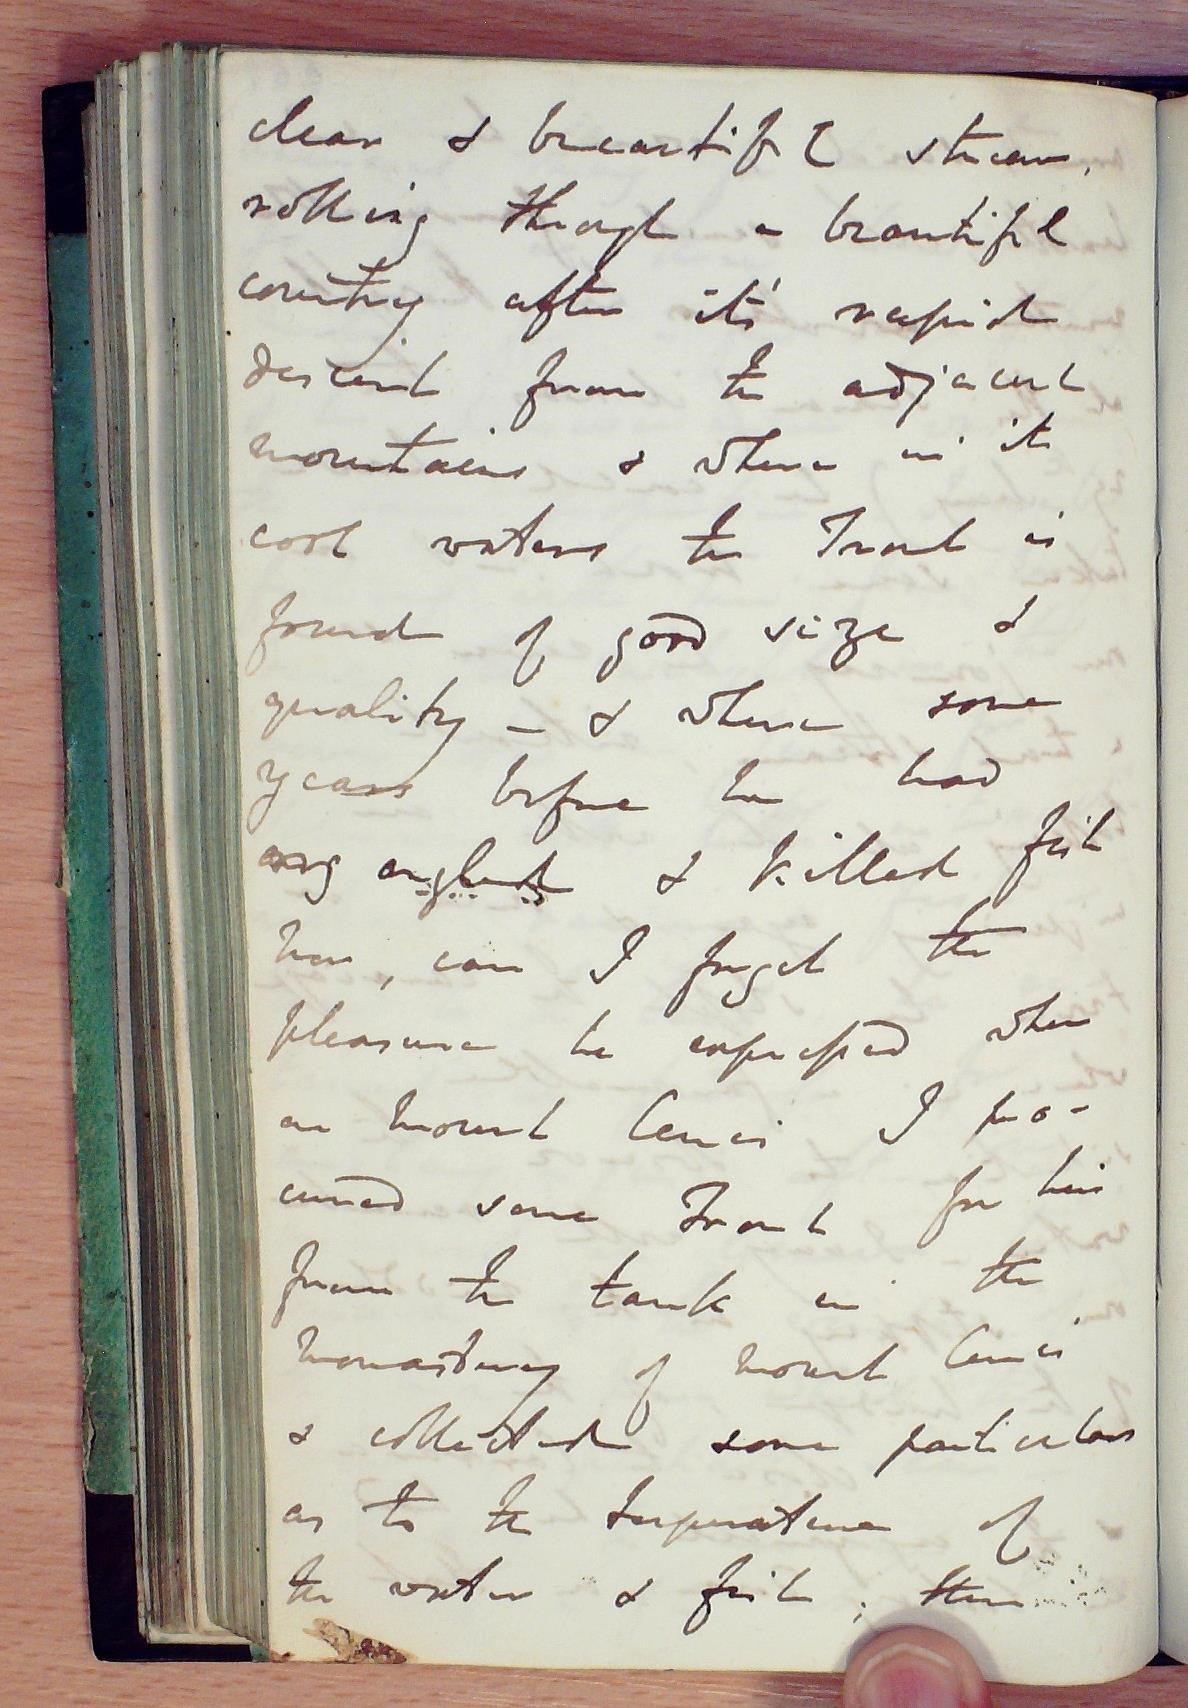 clear & beautiful stream,
rolling through a beautiful
country after it's rapid
descent from the adjacent
mountains & where in its
cool waters the Trout is
found of good size &
quality – & where some
years before he had
ang angled & killed fish
nor, can I forget the
pleasure he expressed when
on Mount Cenis I pro-
cured some Trout for him
from the tank in the
Monastery of Mount Cenis
& collected some particulars
as to the temperature of
the water & fish; then